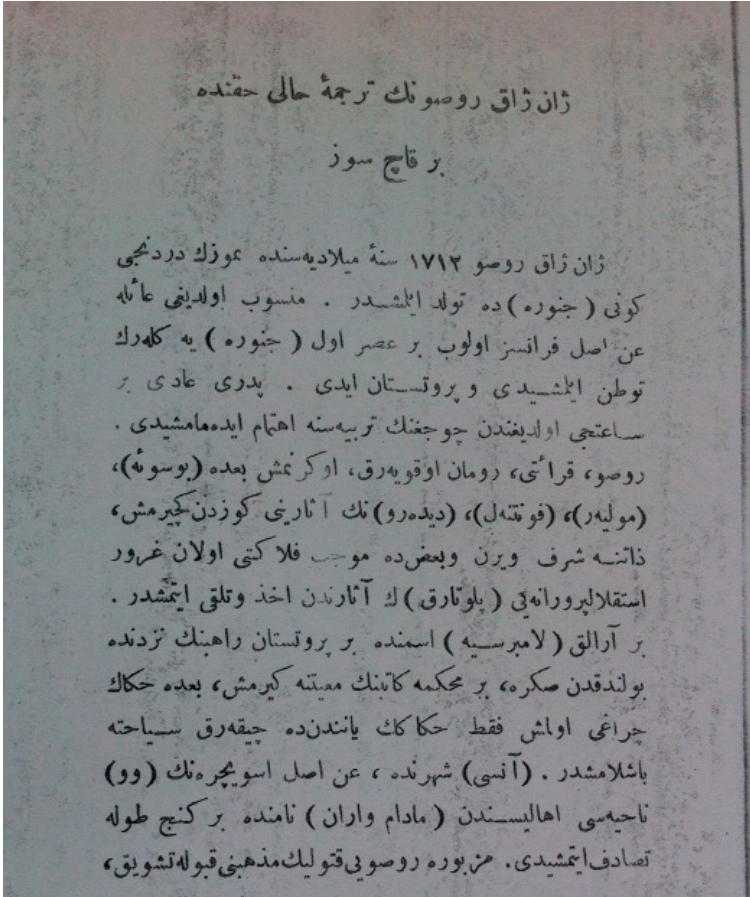 ژان ژاق روصونك ترجمۀ حالی حقنده
بر قاچ سوز
ژان ژاق روصو ١٧١٢ سنۀ میلادیه‌سنده تموزك دردنجی
كونی ( جنوره ) ده تولد ایتمشدر . منسوب اولدیغی عائله
عن اصل فرانسز اولوب بر عصر اول ( جنوره ) یه كله‌رك
توطن ایتمشیدی و پروتستان ایدی . پدری عادی بر
ساعتجی اولدیغندن چوجغنك تربیه‌سنه اهتمام ایده‌مامشیدی .
روصو، قرائتی، رومان اوقویه‌رق، اوكرنمش بعده (بوسوئه)،
(مولیه‌ر)، (فونتنه‌ل)، (دیده‌رو) نك آثارینی كوزدن كچیرمش،
ذاتنه شرف ویرن وبعض‌ده موجب فلاكتی اولان غرور
استقلالپرورانه‌یی ( پلوتارق ) ك آثارندن اخذ وتلقی ایتمشدر .
بر آرالق ( لامبرسیه ) اسمنده بر پروتستان راهبنك نزدنده
بولندقدن صكره، بر محكمه كاتبنك معیتنه كیرمش، بعده حكاك
چراغی اولمش فقط حكاكك یانندن‌ده چیقه‌رق سیاحته
باشلامشدر . (آنسی) شهرنده ، عن اصل اسویچره‌نك (وو)
ناحیه‌سی اهالیسندن ( مادام واران ) نامنده بر كنج طوله
تصادف ایتمشیدی. مزبوره روصویی قتولیك مذهبنی قبوله تشویق،